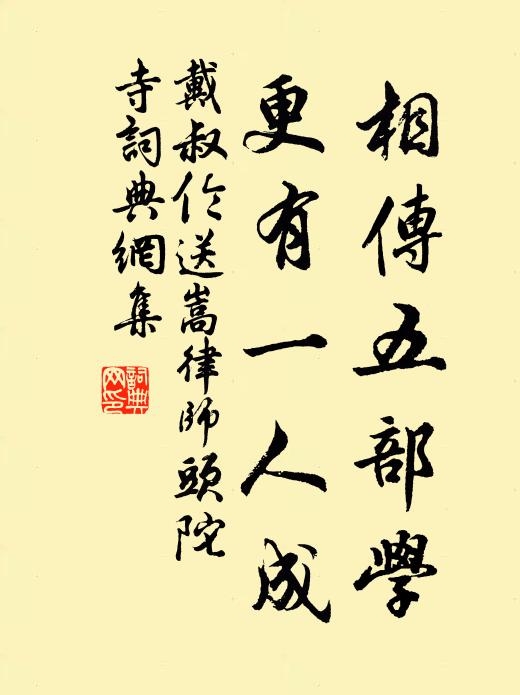 相傳五部學
更有一人成
戴叔伦送嵩律師頭陀
寺詞典網集
詞典
网印